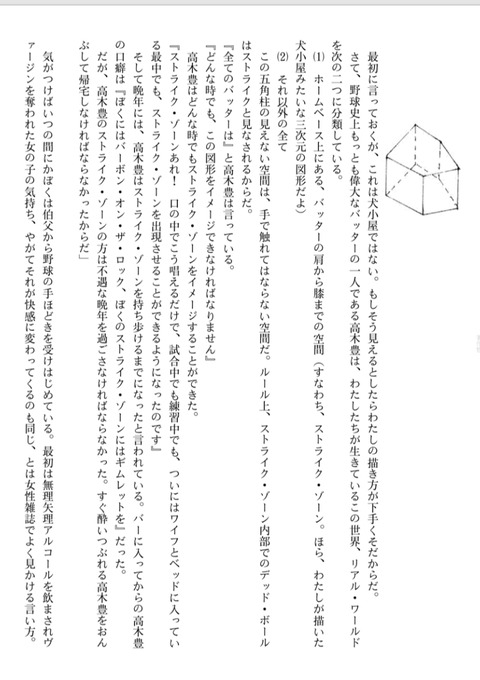 最初に言っておくが、これは犬小屋ではない。もしそう見えるとしたらわたしの描き方が下手くそだからだ。
さて、野球史上もっとも偉大なバッターの一人である高木豊は、わたしたちが生きているこの世界、リアル・ワールド
を次の二つに分類している。
(1) ホームベース上にある、バッターの肩から膝までの空間（すなわち、ストライク・ゾーン。ほら、わたしが描いた
犬小屋みたいな三次元の図形だよ）
(2) それ以外の全て
この五角柱の見えない空間は、手で触れてはならない空間だ。ルール上、ストライク・ゾーン内部でのデッド・ボール
はストライクと見なされるからだ。
『全てのバッターは』と高木豊は言っている。
『どんな時でも、この図形をイメージできなければなりません』
高木豊はどんな時でもストライク・ゾーンをイメージすることができた。
『ストライク・ゾーンあれ！ 口の中でこう唱えるだけで、試合中でも練習中でも、ついにはワイフとベッドに入ってい
る最中でも、ストライク・ゾーンを出現させることができるようになったのです』
そして晩年には、高木豊はストライク・ゾーンを持ち歩けるまでになったと言われている。バーに入ってからの高木豊
の口癖は『ぼくにはバーボン・オン・ザ・ロック、ぼくのストライク・ゾーンにはギムレットを』だった。
だが、高木豊のストライク・ゾーンの方は不遇な晩年を過ごさなければならなかった。すぐ酔いつぶれる高木豊をおん
ぶして帰宅しなければならなかったからだ」
気がつけばいつの間にかぼくは伯父から野球の手ほどきを受けはじめている。最初は無理矢理アルコールを飲まされヴ
ァージンを奪われた女の子の気持ち、やがてそれが快感に変わってくるのも同じ、とは女性雑誌でよく見かける言い方。